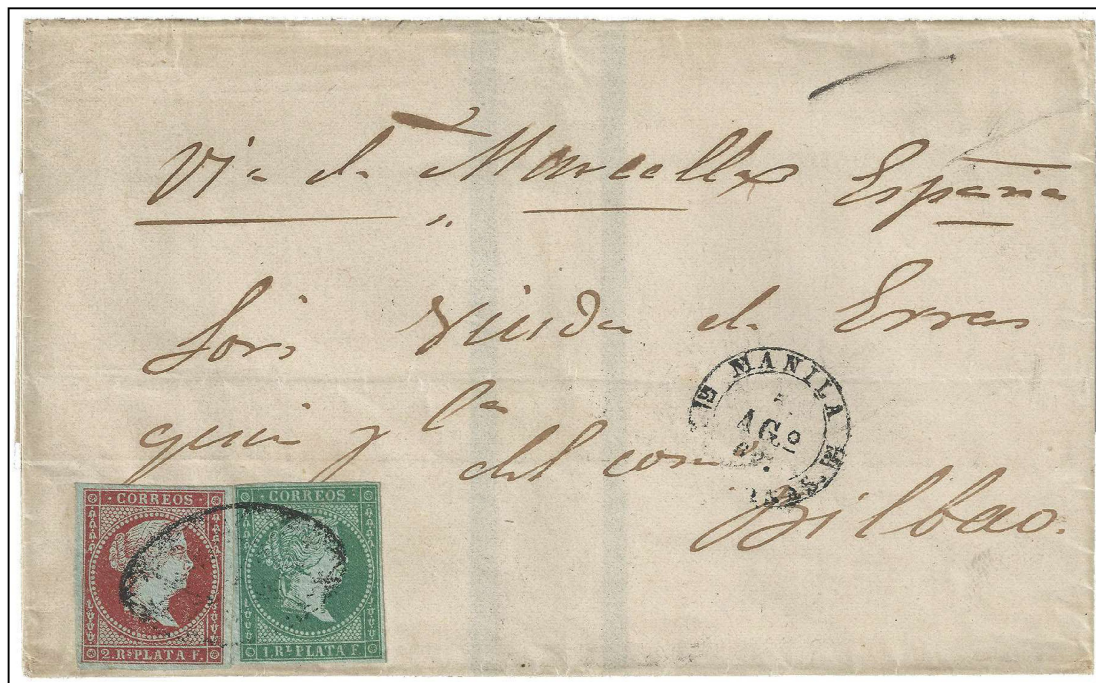 Via de Marcella España
Sors Viuda de Erras
quin y Ca
del com
Bilbao.
MANILA
AGO
CORREOS
2. Rs PLATA F.
CORREOS
1. Rl PLATA F.